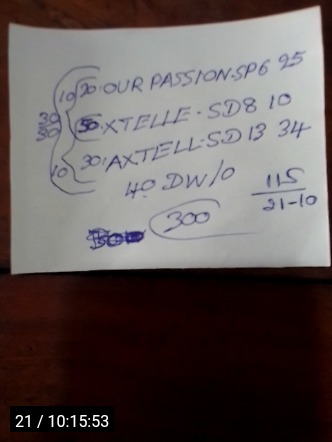 10 20: OUR PASSION. SP6 25
30 50. XTELLE - SD8 10
30
10 30: AXTELL. SD13 34
40. DW/O
115
21-10
300
21 / 10:15:53